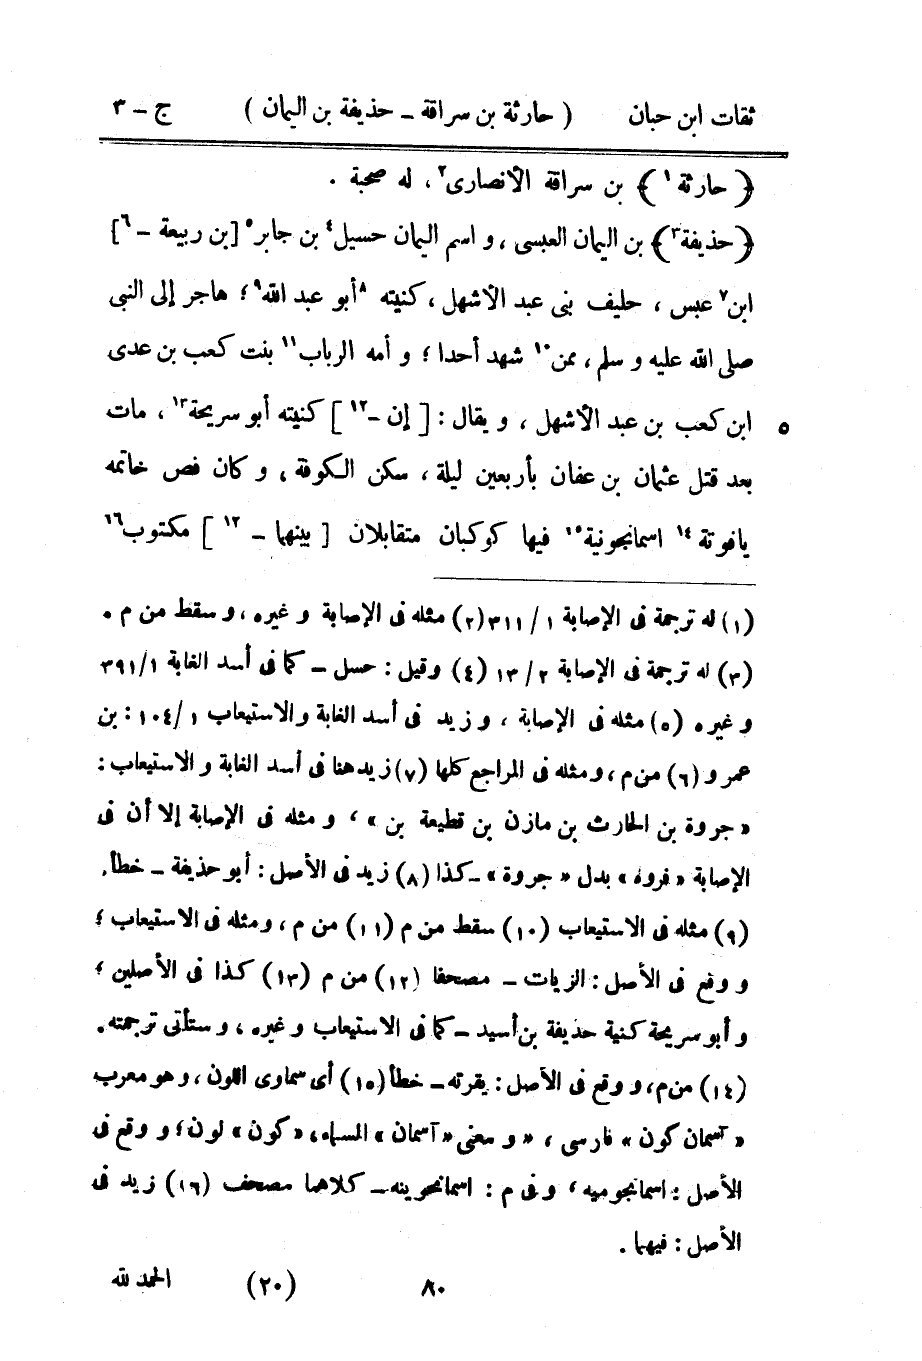 ثقات ابن حبان ( حارثة بن سراقة ــ حذيفة بن اليمان ) ج ــ ٣
﴿ حارثة ١ ﴾ بن سراقة الأنصارى٢ ، له صحبة .
﴿ حذيفة٣ ﴾ بن اليمان العبسى ، و اسم اليمان حسيل٤ بن جابر٥ [بن ربيعة ــ ٦]
ابن٧ عبس ، حليف بنى عبد الأشهل ، كنيته ٨أبو عبد الله٩ ؛ هاجر إلى النبى
صلى الله عليه و سلم ، ممن١٠ شهد أحدا ؛ و أمه الرباب١١ بنت كعب بن عدى
٥ ابن كعب بن عبد الأشهل ، و يقال : [ إن ــ١٢ ] كنيته أبو سريحة١٣ ، مات
بعد قتل عثمان بن عفان بأربعين ليلة ، سكن الكوفة ، و كان فص خاتمه
يافوتة ١٤ اسمانجونية١٥ فيها كوكبان متقابلان [ بينهما ــ ١٢ ] مكتوب١٦
(١) له ترجمة فى الإصابة ١ / ٣١١ (٢) مثله فى الإصابة و غيره ، و سقط من م .
(٣) له ترجمة فى الإصابة ٢ / ١٣ (٤) وقيل : حسل ــ كما فى أسد الغابة ١/ ٣٩١
و غيره (٥) مثله فى الإصابة ، و زيد فى أسد الغابة والاستيعاب ١ /١٠٤ : بن
عمر و (٦) من م ، و مثله فى المراجع كلها (٧) زيد هنا فى أسد الغابة و الاستيعاب :
« جروة بن الحارث بن مازن بن قطيعة بن » ، و مثله فى الإصابة إلا أن فى
الإصابة « فروة » بدل « جروة » ــ كذا (٨) زيد فى الأصل : أبو حذيفة ــ خطأ .
(٩) مثله فى الاستيعاب (١٠) سقط من م (١١) من م ، ومثله فى الاستيعاب ؛
و وقع فى الأصل : الزيات ــ مصحفا (١٢) من م (١٣) كذا فى الأصلين ؛
و أبو سريحة كنية حذيفة بن أسيد ــ كما فى الاستيعاب و غيره ، و ستأتى ترجمته .
(١٤) من م، و وقع فى الأصل : يقرته ــ خطأ (١٥) أى سماوى اللون ، و هو معرب
« آسمان كون » فارسى ، « و معنى « آسمان » السماء ، « كون » لون ؛ و وقع فى
الأصل : اسمانجوميه ، و فى م : اسمانحوينه ــ كلاهما مصحف (١٦) زيد فى
الأصل : فيهما .
٨٠ (٢٠) الحمد لله